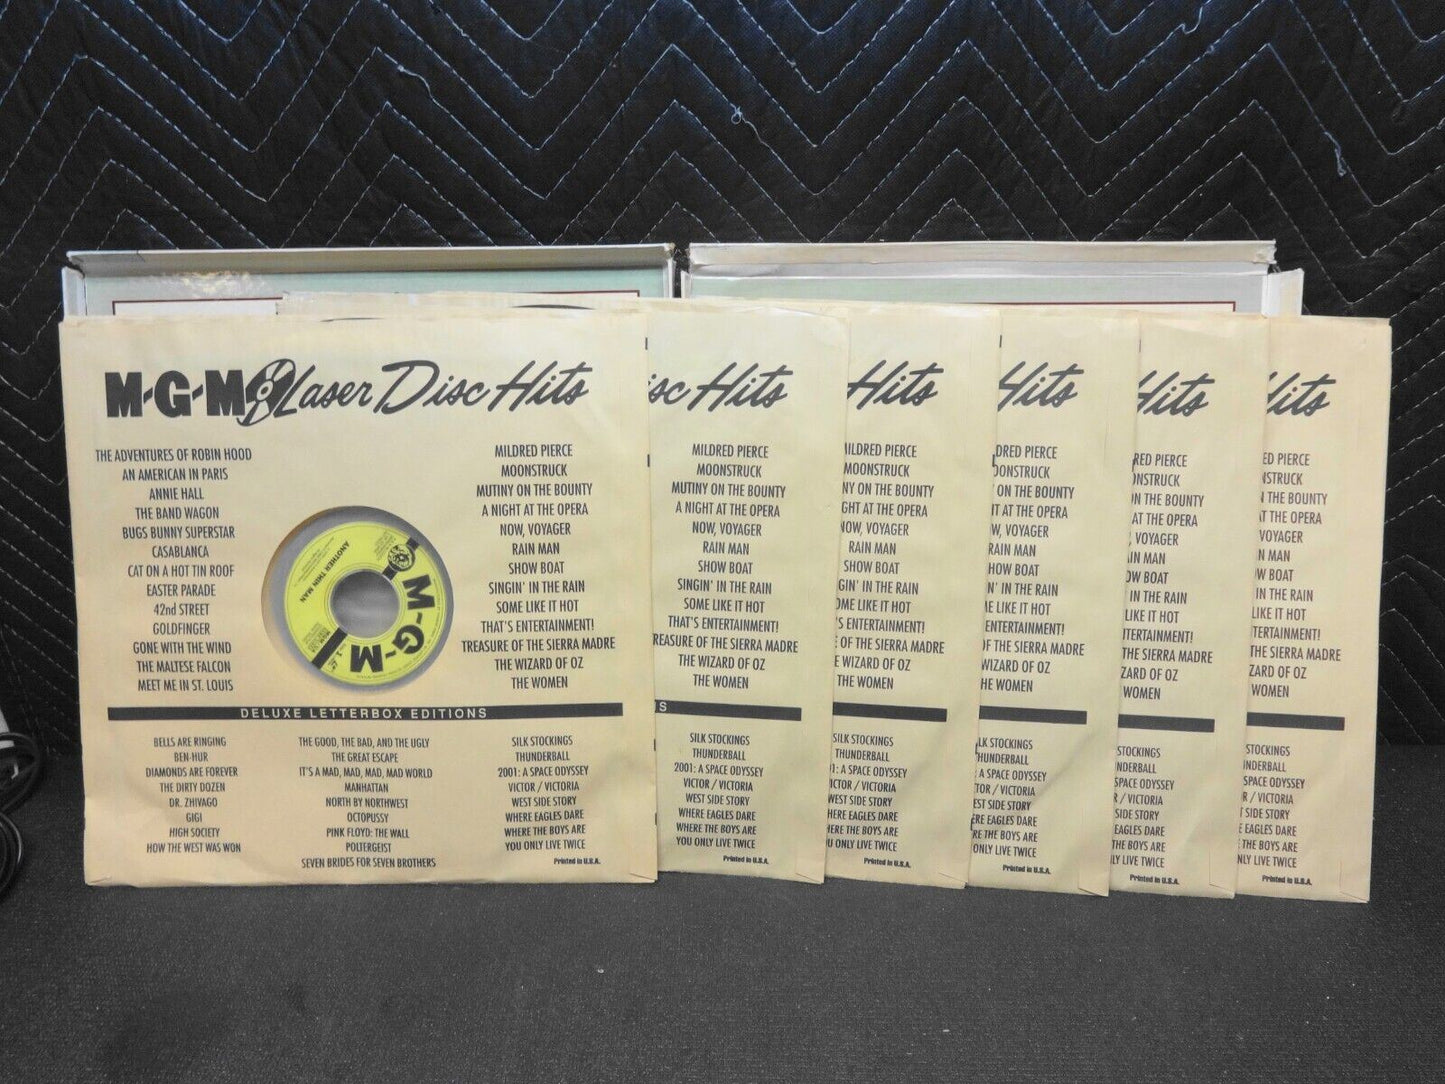 M-G-M Laser Disc Hits
THE ADVENTURES OF ROBIN HOOD
AN AMERICAN IN PARIS
ANNIE HALL
THE BAND WAGON
BUGS BUNNY SUPERSTAR
CASABLANCA
CAT ON A HOT TIN ROOF
EASTER PARADE
42nd STREET
GOLDFINGER
GONE WITH THE WIND
THE MALTESE FALCON
MEET ME IN ST. LOUIS
ANOTHER THIN MAN
M-G-M
MILDRED PIERCE
MOONSTRUCK
MUTINY ON THE BOUNTY
A NIGHT AT THE OPERA
NOW, VOYAGER
RAIN MAN
SHOW BOAT
SINGIN' IN THE RAIN
SOME LIKE IT HOT
THAT'S ENTERTAINMENT!
TREASURE OF THE SIERRA MADRE
THE WIZARD OF OZ
THE WOMEN
DELUXE LETTERBOX EDITIONS
BELLS ARE RINGING
BEN-HUR
DIAMONDS ARE FOREVER
THE DIRTY DOZEN
DR. ZHIVAGO
GIGI
HIGH SOCIETY
HOW THE WEST WAS WON
THE GOOD, THE BAD, AND THE UGLY
THE GREAT ESCAPE
IT'S A MAD, MAD, MAD, MAD WORLD
MANHATTAN
NORTH BY NORTHWEST
OCTOPUSSY
PINK FLOYD: THE WALL
POLTERGEIST
SEVEN BRIDES FOR SEVEN BROTHERS
SILK STOCKINGS
THUNDERBALL
2001: A SPACE ODYSSEY
VICTOR / VICTORIA
WEST SIDE STORY
WHERE EAGLES DARE
WHERE THE BOYS ARE
YOU ONLY LIVE TWICE
Printed in U.S.A.
isc Hits
MILDRED PIERCE
MOONSTRUCK
MUTINY ON THE BOUNTY
A NIGHT AT THE OPERA
NOW, VOYAGER
RAIN MAN
SHOW BOAT
SINGIN' IN THE RAIN
SOME LIKE IT HOT
THAT'S ENTERTAINMENT!
REASURE OF THE SIERRA MADRE
THE WIZARD OF OZ
THE WOMEN
S
SILK STOCKINGS
THUNDERBALL
2001: A SPACE ODYSSEY
VICTOR / VICTORIA
WEST SIDE STORY
WHERE EAGLES DARE
WHERE THE BOYS ARE
YOU ONLY LIVE TWICE
Printed in U.S.A.
Hits
MILDRED PIERCE
MOONSTRUCK
NY ON THE BOUNTY
IGHT AT THE OPERA
NOW, VOYAGER
RAIN MAN
SHOW BOAT
GIN' IN THE RAIN
OME LIKE IT HOT
T'S ENTERTAINMENT!
E OF THE SIERRA MADRE
E WIZARD OF OZ
THE WOMEN
SILK STOCKINGS
THUNDERBALL
1: A SPACE ODYSSEY
CTOR / VICTORIA
WEST SIDE STORY
HERE EAGLES DARE
HERE THE BOYS ARE
U ONLY LIVE TWICE
Printed in U.S.A.
Hits
DRED PIERCE
OONSTRUCK
ON THE BOUNTY
HT AT THE OPERA
W, VOYAGER
RAIN MAN
HOW BOAT
N' IN THE RAIN
E LIKE IT HOT
S ENTERTAINMENT!
OF THE SIERRA MADRE
WIZARD OF OZ
HE WOMEN
LK STOCKINGS
HUNDERBALL
A SPACE ODYSSEY
TOR / VICTORIA
EST SIDE STORY
ERE EAGLES DARE
RE THE BOYS ARE
ONLY LIVE TWICE
Printed in U.S.A.
Hits
RED PIERCE
NSTRUCK
N THE BOUNTY
AT THE OPERA
, VOYAGER
IN MAN
OW BOAT
IN THE RAIN
LIKE IT HOT
NTERTAINMENT!
THE SIERRA MADRE
ZARD OF OZ
WOMEN
STOCKINGS
NDERBALL
SPACE ODYSSEY
R / VICTORIA
SIDE STORY
EAGLES DARE
THE BOYS ARE
LY LIVE TWICE
Printed in U.S.A.
its
ED PIERCE
NSTRUCK
N THE BOUNTY
AT THE OPERA
VOYAGER
N MAN
W BOAT
IN THE RAIN
LIKE IT HOT
ENTERTAINMENT!
THE SIERRA MADRE
ZARD OF OZ
WOMEN
STOCKINGS
NDERBALL
SPACE ODYSSEY
R / VICTORIA
SIDE STORY
EAGLES DARE
THE BOYS ARE
NLY LIVE TWICE
Printed in U.S.A.